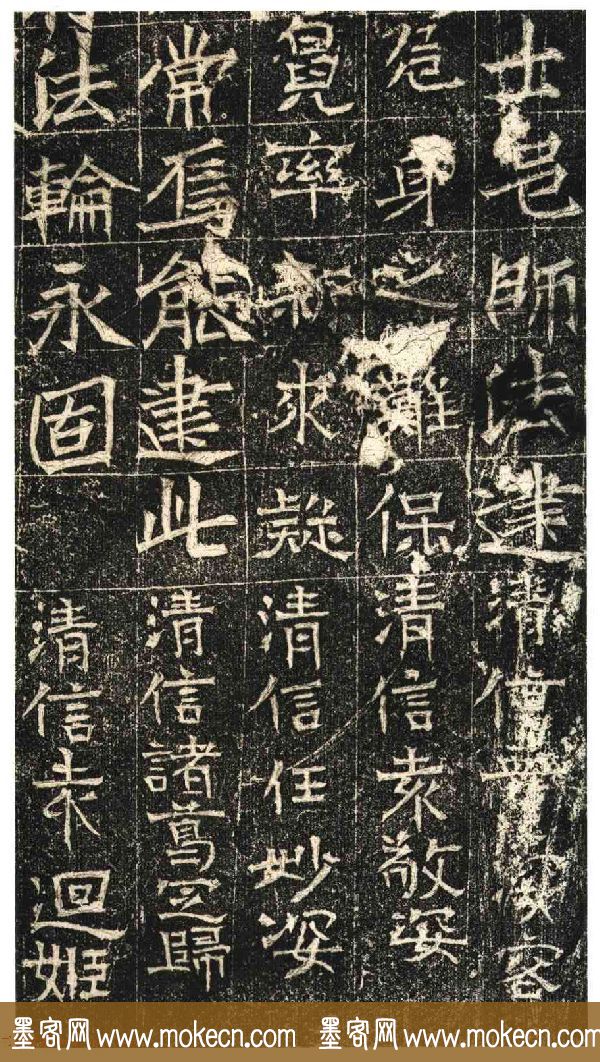 士邑師法建清信
危身之難保清信袁敬姿
率來疑清信任妙姿
常焉能建此清信諸葛定歸
法輪永固清信袁迴姬
墨客网 www.mokecn.com 墨客网 www.mokecn.com